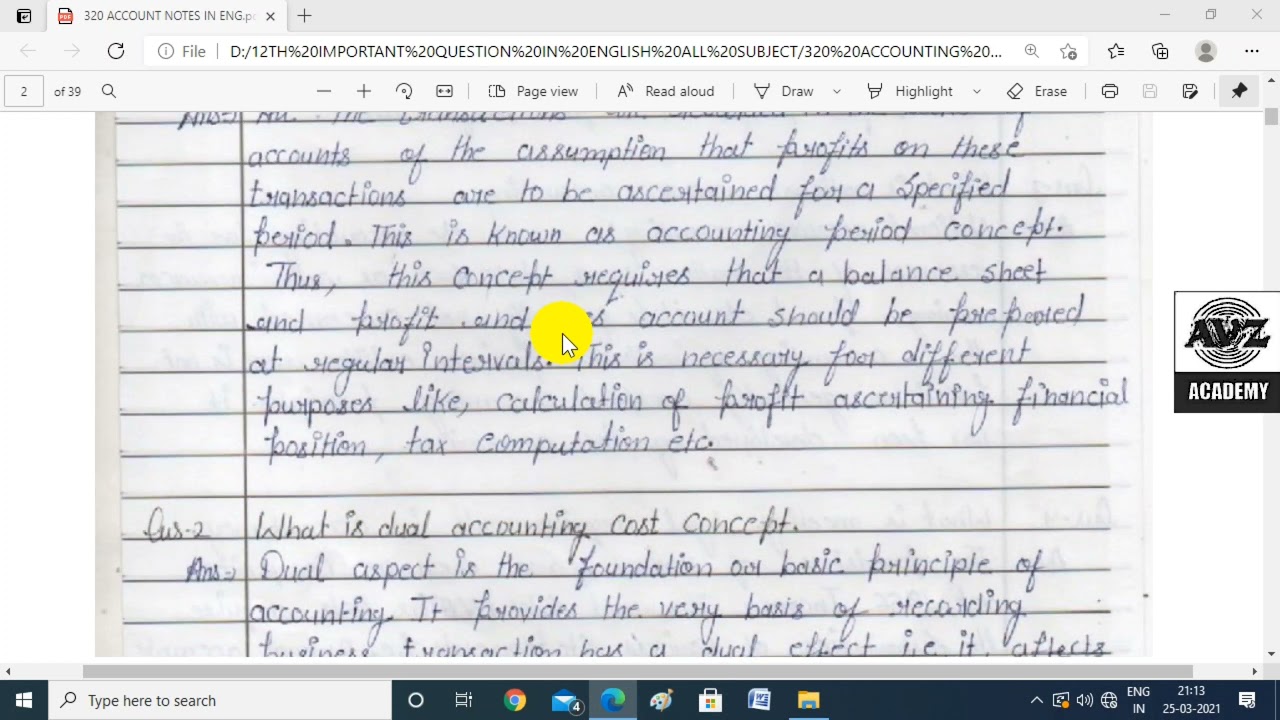 320 ACCOUNT NOTES IN ENG.p
File D:/12TH%20IMPORTANT%20QUESTION%20IN%20ENGLISH%20ALL%20SUBJECT/320%20ACCOUNTING%20...
2 of 39 Page view Read aloud Draw Highlight Erase
accounts of the assumption that profits on these
transactions are to be ascertained for a specified
period. This is known as accounting period concept.
Thus, this concept requires that a balance sheet
and profit and account should be prepared
at regular intervals. This is necessary for different
purposes like, calculation of profit ascertaining financial
position, tax computation etc.
Qus-2 What is dual accounting cost concept.
Ans:- Dual aspect is the foundation or basic principle of
accounting. It provides the very basis of recording
business transaction has a dual effect i.e. it affects
AVZ
ACADEMY
Type here to search
4
ENG
IN
21:13
25-03-2021